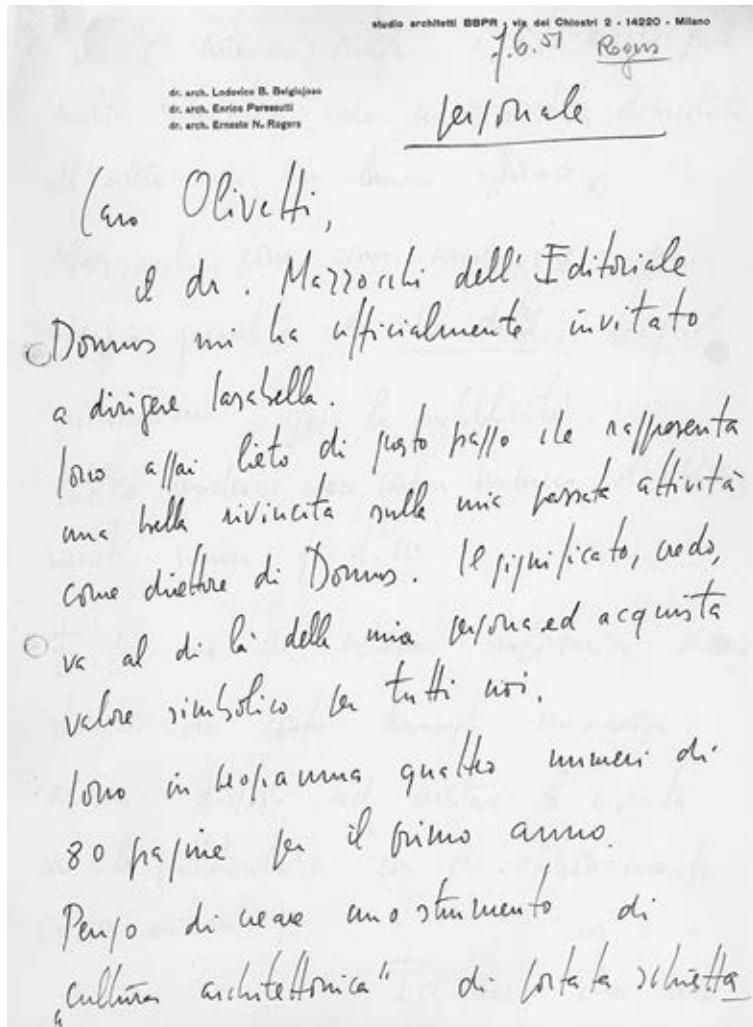 studio architetti BBPR - via dei Chiostri 2 - 14220 - Milano
7.6.51 Rogers
dr. arch. Lodovico B. Belgiojoso
dr. arch. Enrico Peressutti
dr. arch. Ernesto N. Rogers
personale
Caro Olivetti,
il dr. Mazzocchi dell'Editoriale
Domus mi ha ufficialmente invitato
a dirigere Casabella.
Sono assai lieto di questo passo che rappresenta
una bella rivincita sulla mia passata attività
come direttore di Domus. Il significato, credo,
va al di là della mia persona ed acquista
valore simbolico per tutti noi.
Sono in programma quattro numeri di
80 pagine per il primo anno.
Penso di creare uno strumento di
"cultura architettonica" di portata schietta